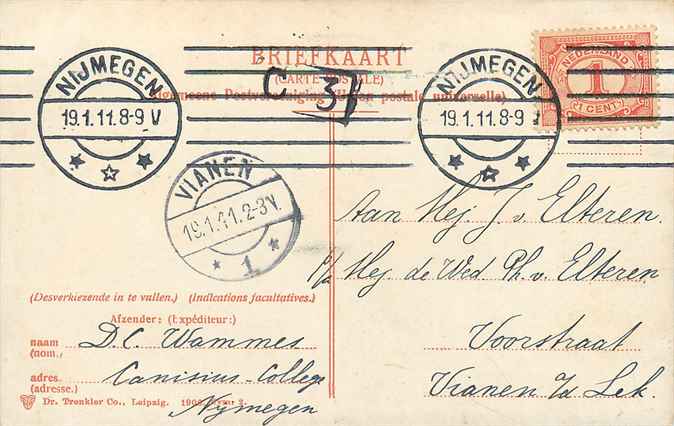 BRIEFKAART
(CARTE POSTALE)
Algemeene Postvereeniging (Union postale universelle)
NEDERLAND
1
1 CENT
NIJMEGEN
19.1.11.8-9 V
NIJMEGEN
19.1.11.8-9
C 34
VIANEN
19.1.11.2-3N.
1
Aan Mej. J. v. Elteren.
p/a Mej. de Wed. Ph. v. Elteren.
Voorstraat
Vianen a/d Lek.
(Desverkiezende in te vullen.) (Indications facultatives.)
Afzender: (Expéditeur:)
naam D.C. Wammes
(nom.)
adres. Canisius-College
(adresse.)
Nymegen
Dr. Trenkler Co., Leipzig. 1906